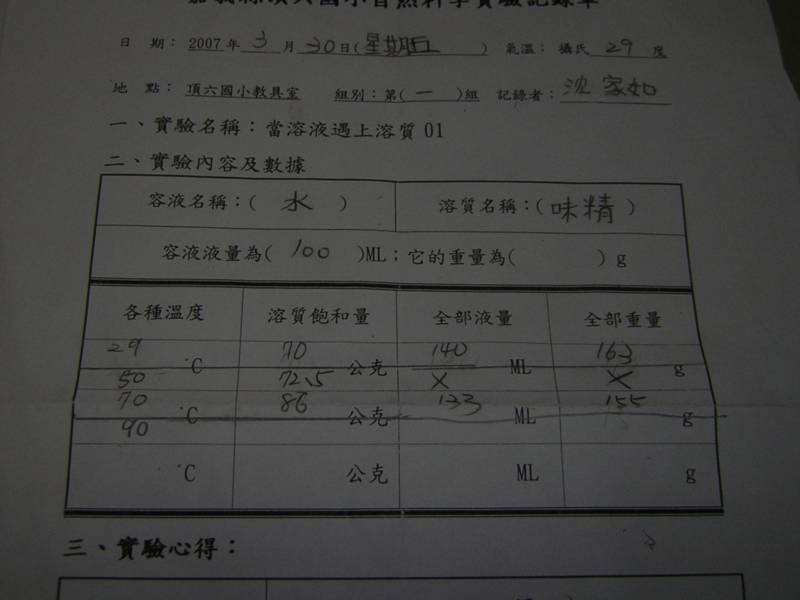 嘉義縣頂六國小自然科學實驗記錄單
日 期： 2007 年 3 月 30 日(星期五 ) 氣溫： 攝氏 29 度
地 點： 頂六國小教具室 組別：第( 一 )組 記錄者：沈家如
一、實驗名稱：當溶液遇上溶質 01
二、實驗內容及數據
容液名稱：( 水 ) 溶質名稱：(味精 )
容液液量為( 100 )ML；它的重量為( ) g
各種溫度 溶質飽和量 全部液量 全部重量
29 70 140 163
℃ 公克 ML g
50 72.5 X X
70 86 133 155
℃ 公克 ML g
90
℃ 公克 ML g
三、實驗心得：